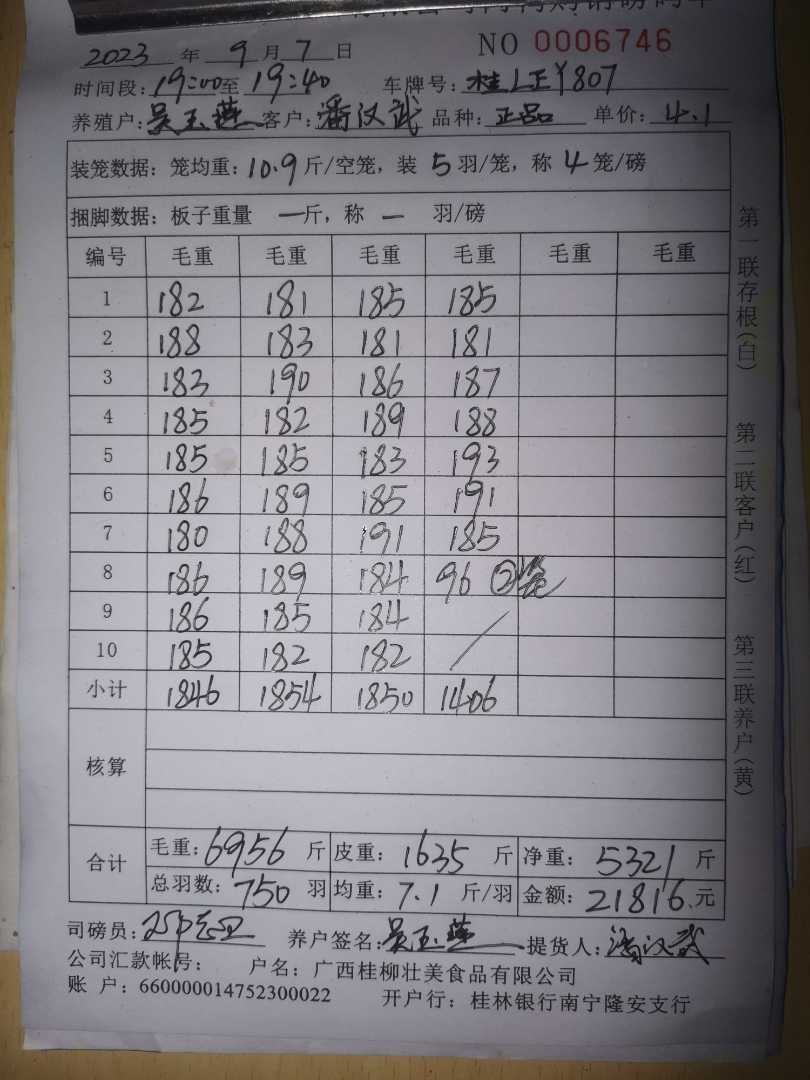 2023 年 9 月 7 日 NO 0006746
时间段: 19:00至 19:40 车牌号: 桂
养殖户: 吴玉燕 客户: 潘汉武 品种: 正品 单价: 4.1
装笼数据: 笼均重: 10.9 斤/空笼, 装 5 羽/笼, 称 4 笼/磅
捆脚数据: 板子重量 一斤, 称 一 羽/磅
编号 毛重 毛重 毛重 毛重 毛重 毛重
1 182 181 185 185
2 188 183 181 181
3 183 190 186 187
4 185 182 189 188
5 185 185 183 193
6 186 189 185 191
7 180 188 191 185
8 186 189 184 96 ②笼
9 186 185 184
10 185 182 182 /
小计 1846 1854 1850 1406
核算
合计 毛重: 6956 斤 皮重: 1635 斤 净重: 5321 斤
总羽数: 750 羽 均重: 7.1 斤/羽 金额: 21816.元
司磅员: 养户签名: 吴玉燕 提货人: 潘汉武
公司汇款帐号: 户名: 广西桂柳壮美食品有限公司
账 户: 660000014752300022 开户行: 桂林银行南宁隆安支行
第一联存根(白) 第二联客户(红) 第三联养户(黄)